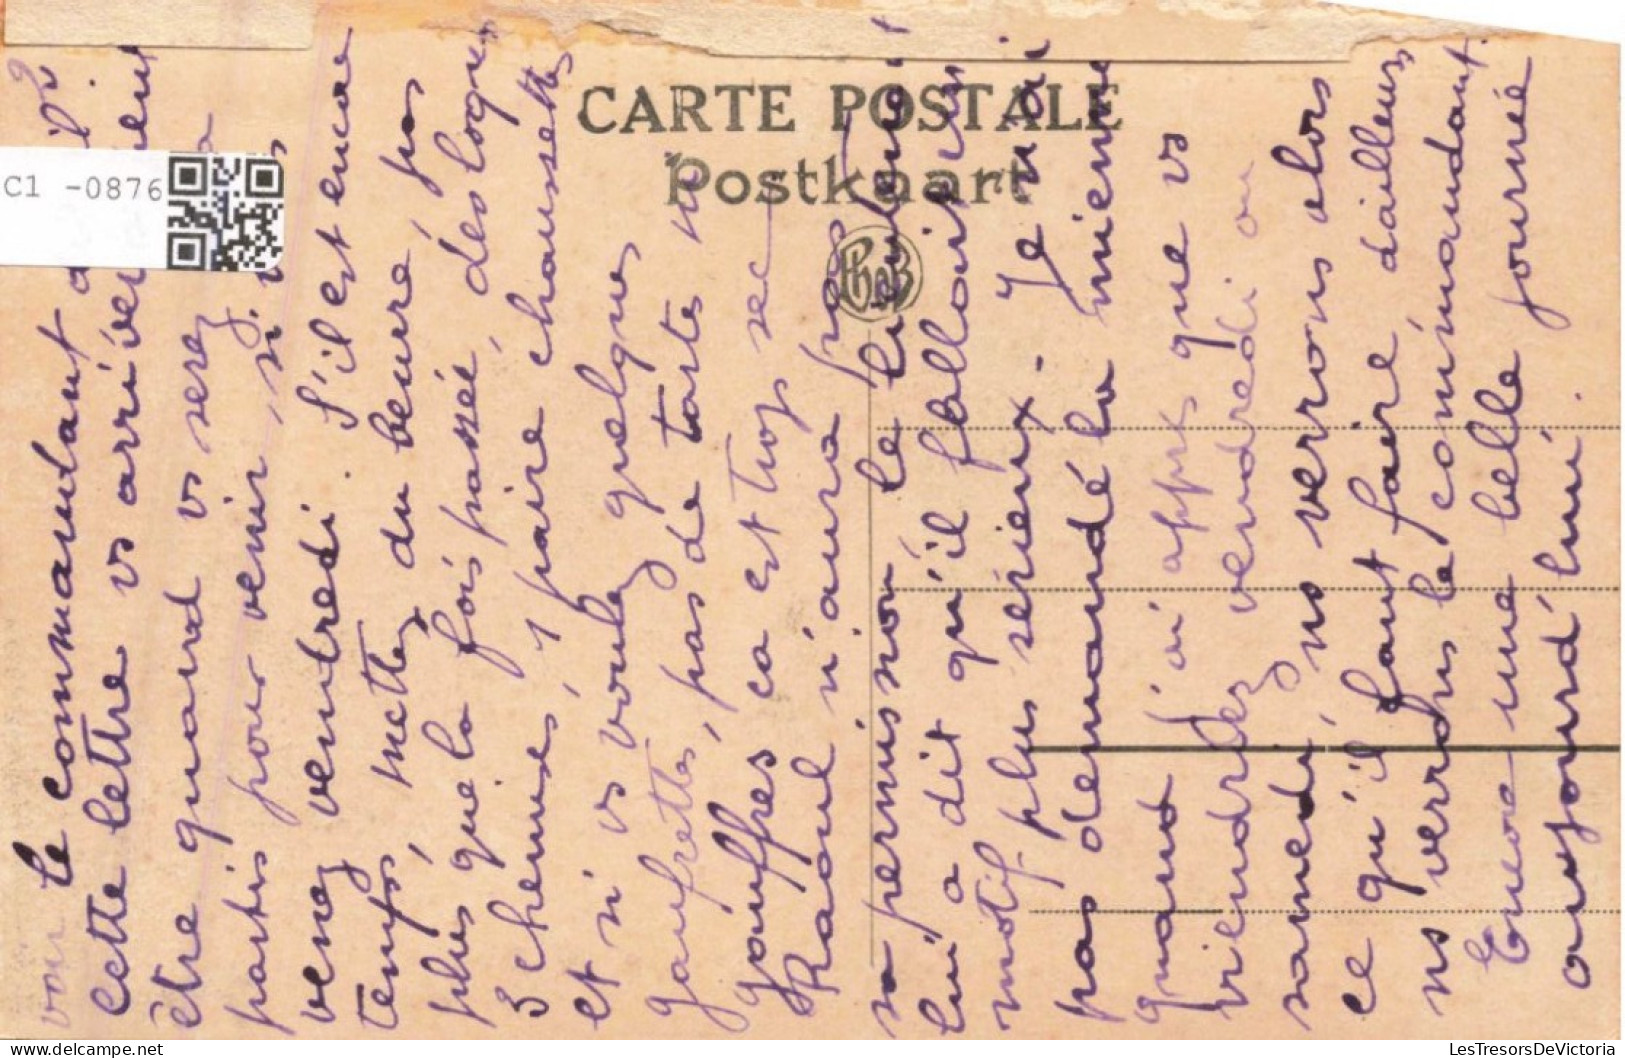 CARTE POSTALE
Postkaart
C1 -0876
voir le commandant
Cette lettre vs arrivera
être quand vs serez
partis pour venir, si vs
venez vendredi. S'il est encore
temps, mettez du beurre, pas
plus que la fois passée, des loques
3 chemises, 1 paire chaussettes
et si vs voulez quelques
gaufrettes, pas de tartes ni
gauffres ça est trop sec
Raoul n'aura pas
sa permission le lieutenant
lui a dit qu'il falloit un
motif plus sérieux - Je n'ai
pas demandé la mienne
quand j'ai appris que vs
viendrez vendredi ou
samedi, ns verrons alors
ce qu'il faut faire, d'ailleurs
ns verrons le commandant.
Encore une belle journée
aujourd'hui.
LesTresorsDeVictoria